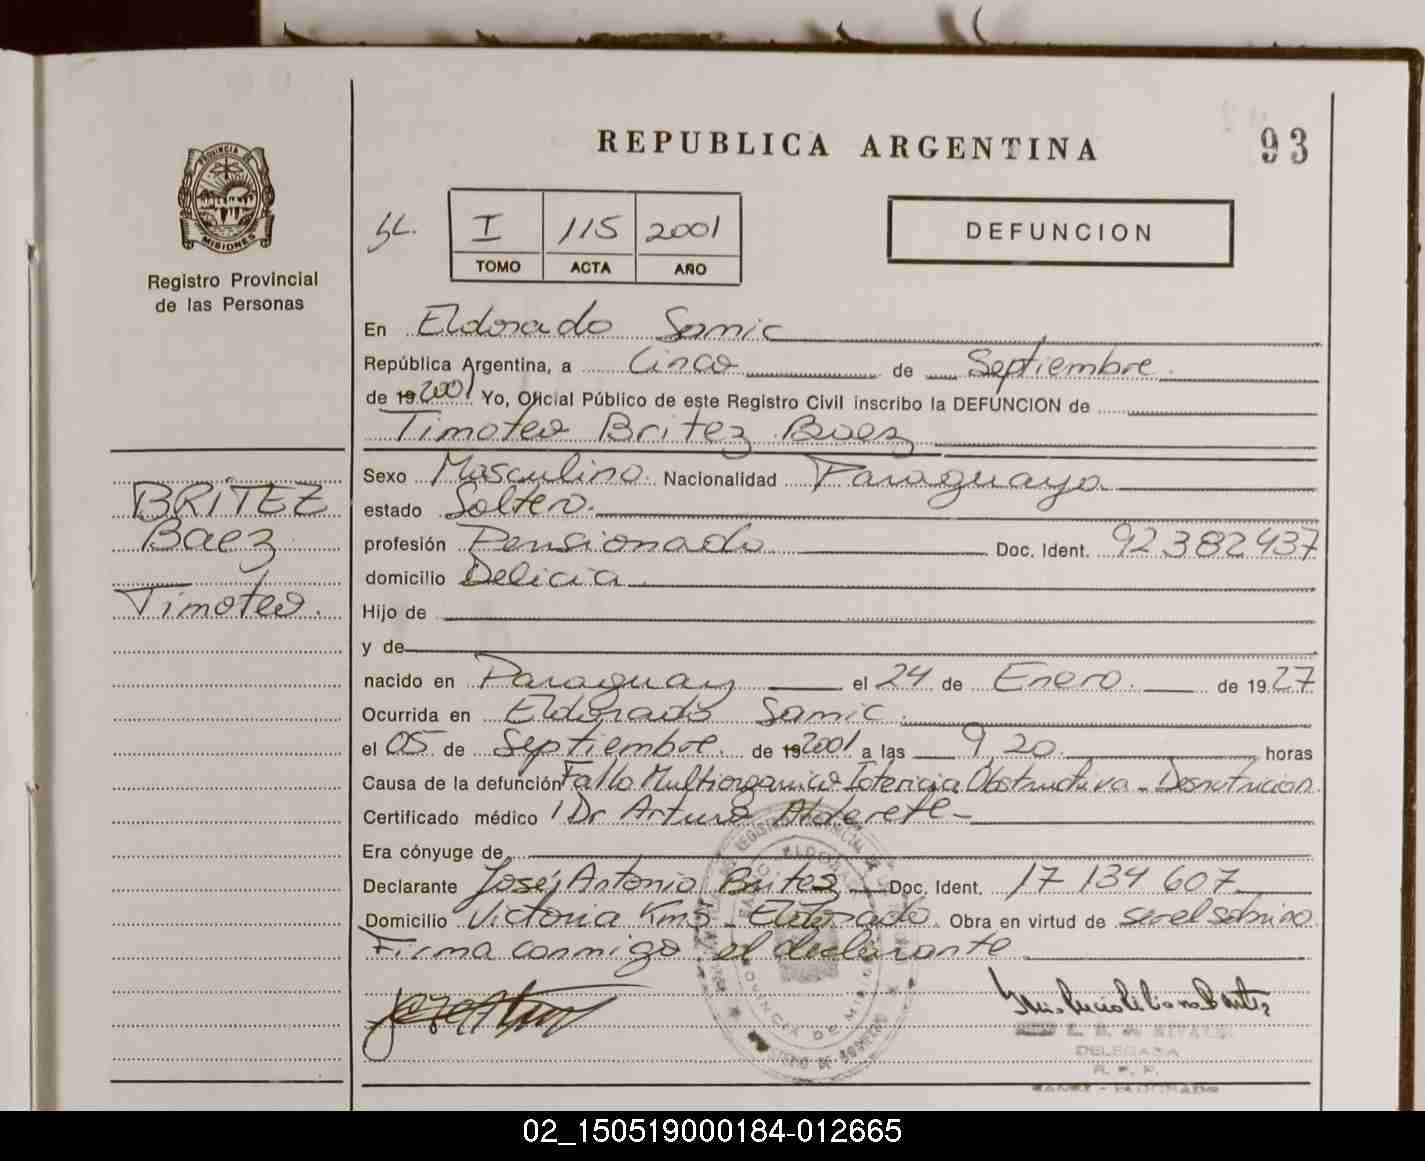 REPUBLICA ARGENTINA
93
PROVINCIA DE
MISIONES
Registro Provincial
de las Personas
I 115 2001
TOMO ACTA AÑO
DEFUNCION
En Eldorado Samic
República Argentina, a Cinco de Septiembre
de 19 2001 Yo, Oficial Público de este Registro Civil inscribo la DEFUNCION de
Timoteo Britez Baez
BRITEZ
Baez
Timoteo.
Sexo Masculino. Nacionalidad Paraguaya
estado Soltero.
profesión Pensionado Doc. Ident. 92 382 937
domicilio Delicia
Hijo de
y de
nacido en Paraguay el 24 de Enero. de 19 27
Ocurrida en Eldorado Samic.
el 05 de Septiembre. de 19 2001 a las 9 20 horas
Causa de la defunción Fallo Multiorganico Ictericia Obstructiva - Desnutricion
Certificado médico Dr Arturo Alderete -
Era cónyuge de
Declarante José Antonio Britez Doc. Ident. 17 134 607
Domicilio Victoria Km5 - Eldorado. Obra en virtud de ser el sobrino
Firma conmigo el declarante
DELEGADA
R. P. P.
PROVINCIA DE MISIONES
02_150519000184-012665